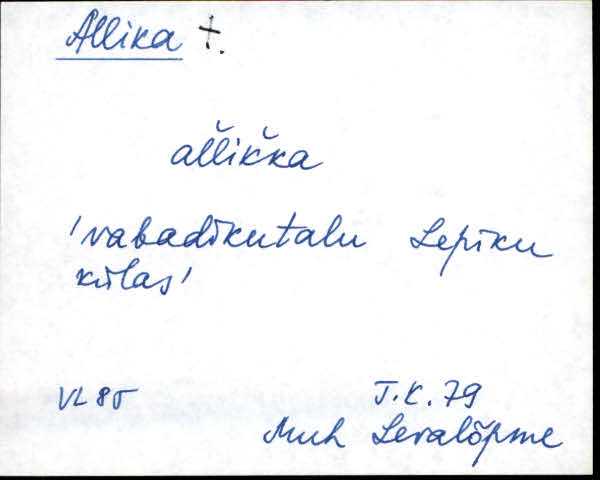 Allika t.
al̆likǩa
'vabadikutalu Lepiku
külas'
VL 85 T.K. 79
Muh Levalõpme